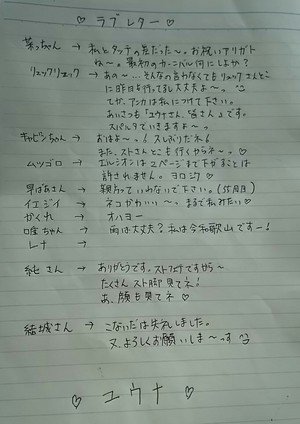 ♡ ラブレター ♡
菜っちゃん → 私とタッチの差だった〜。お祝いアリガト
ね〜。最初のカンバル何にしよか?
リュックリュック → あの〜...そんな言わなくてもリュックさんとこ
に昨日も行ってるし大丈夫よ〜っ
てか、アンカは私につけて下さい。
あいさつも「ユウナさん、皆さん」です。
スパルタでいきますよ〜っ
キャビンちゃん → おはよ〜っ!久しぶりだネ!
また、ストさんとこも行くからネ〜っ♡
ムツゴロ → エルシオンは2ページまで下がることは
許されません。ヨロシク♡
早ばあさん → 頬片っていわないで下さい。
イエジイ → ネコがかわいい〜っ まるで私みたい♡
かくれ → オハヨー
ちゃん → 雨は大丈夫?私は今和歌山です〜!
レナ →
純さん → ありがとうです。ストフェチですから〜
たくさんスト脚見てネ!
あ、顔も見てネ♡
結城さん → こないだは失礼しました。
又、よろしくお願いしま〜っす
♡ ユウナ ♡